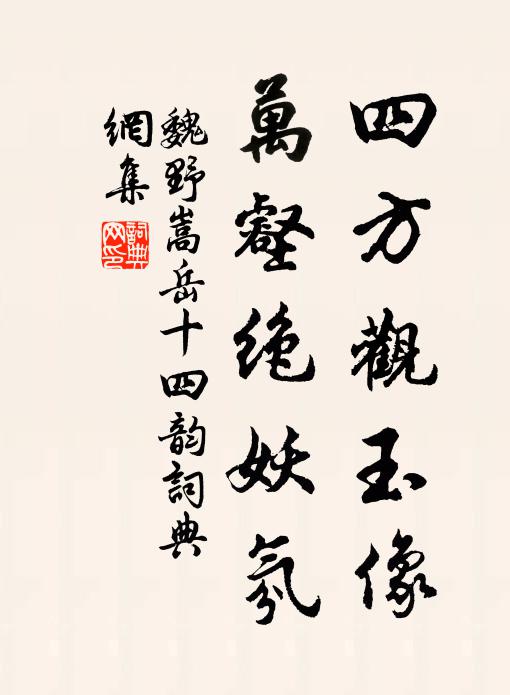 四方觀玉像
萬壑绝妖氛
魏野嵩岳十四韵詞典
網集
詞典
网印